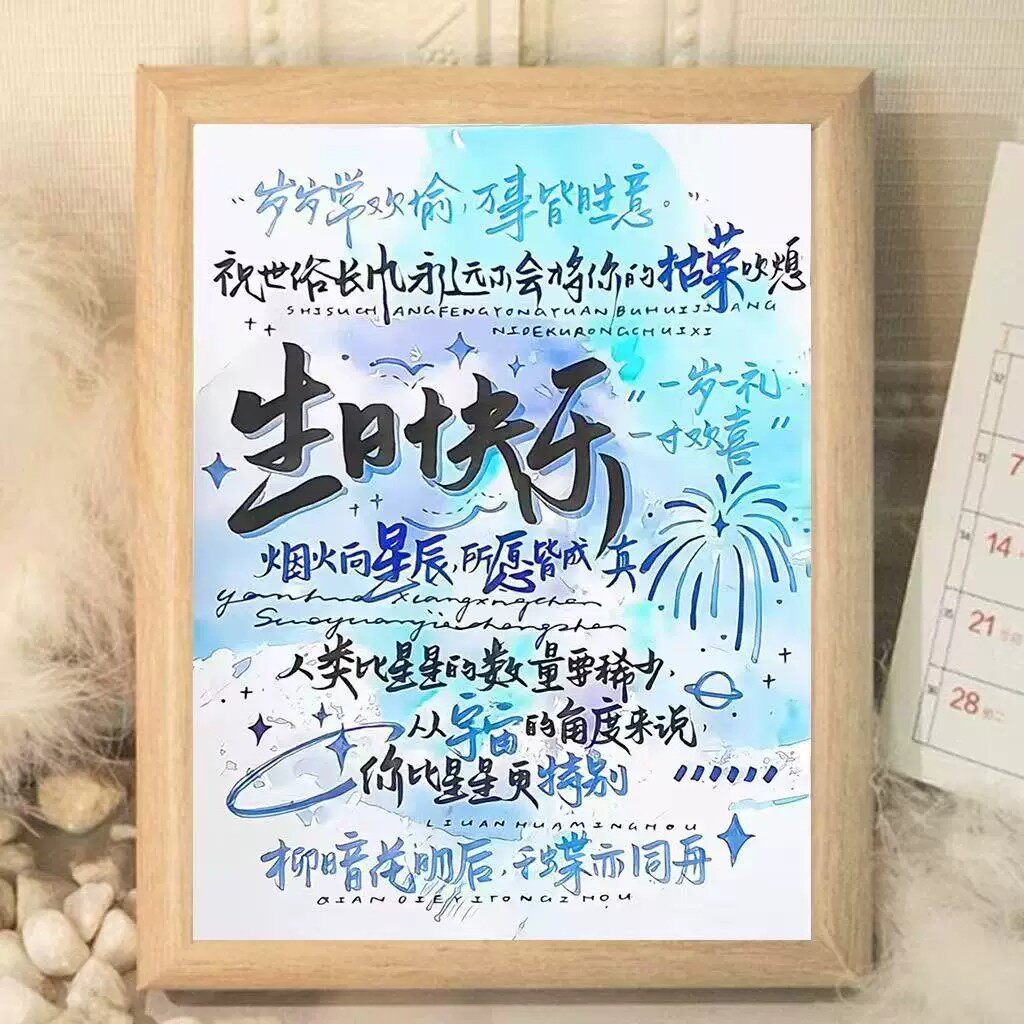 “岁岁常欢愉,万事皆胜意。”
祝世俗长风永远不会将你的枯荣吹熄
SHISUCHANGFENGYONGYUANBUHUIJIANG
NIDEKURONGCHUIXI
生日快乐
“一岁一礼
一寸欢喜”
烟火向星辰,所愿皆成真
yanhuo xiangxingchen
Suoyuanjiechengzhen
人类比星星的数量要稀少,
从宇宙的角度来说,
你比星星更特别
LIUANHUAMINGHOU
柳暗花明后,千蝶亦同舟
QIANDIEYITONGZHOU
7
14
21
28